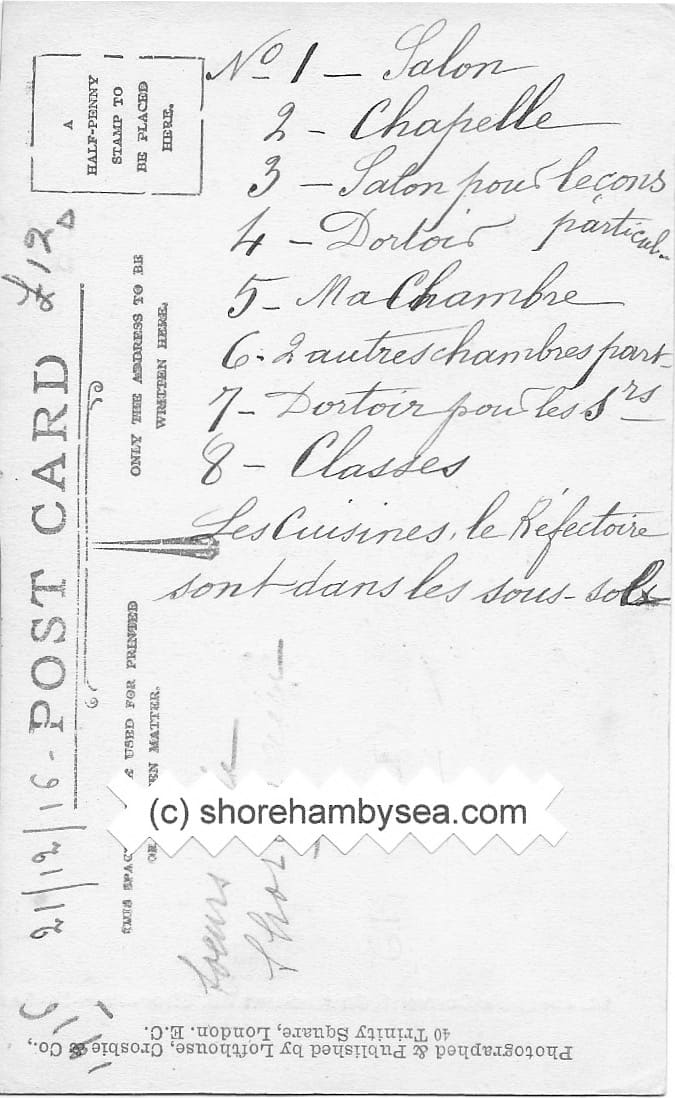 No 1 – Salon
2 – Chapelle
3 – Salon pour leçons
particul.
4 – Dortoir
5 – Ma Chambre
6 - 2 autres chambres part
7 – Dortoir pour les Srs
8 – Classes
Les Cuisines, le Réfectoire
sont dans les sous-sols
A
HALF-PENNY
STAMP TO
BE PLACED
HERE.
£12
POST CARD
21/12/16
ONLY THE ADDRESS TO BE
WRITTEN HERE.
USED FOR PRINTED
MATTER.
Soeurs
(c) shorehambysea.com
Photographed & Published by Lofthouse, Crosbie & Co.,
40 Trinity Square, London. E.C.